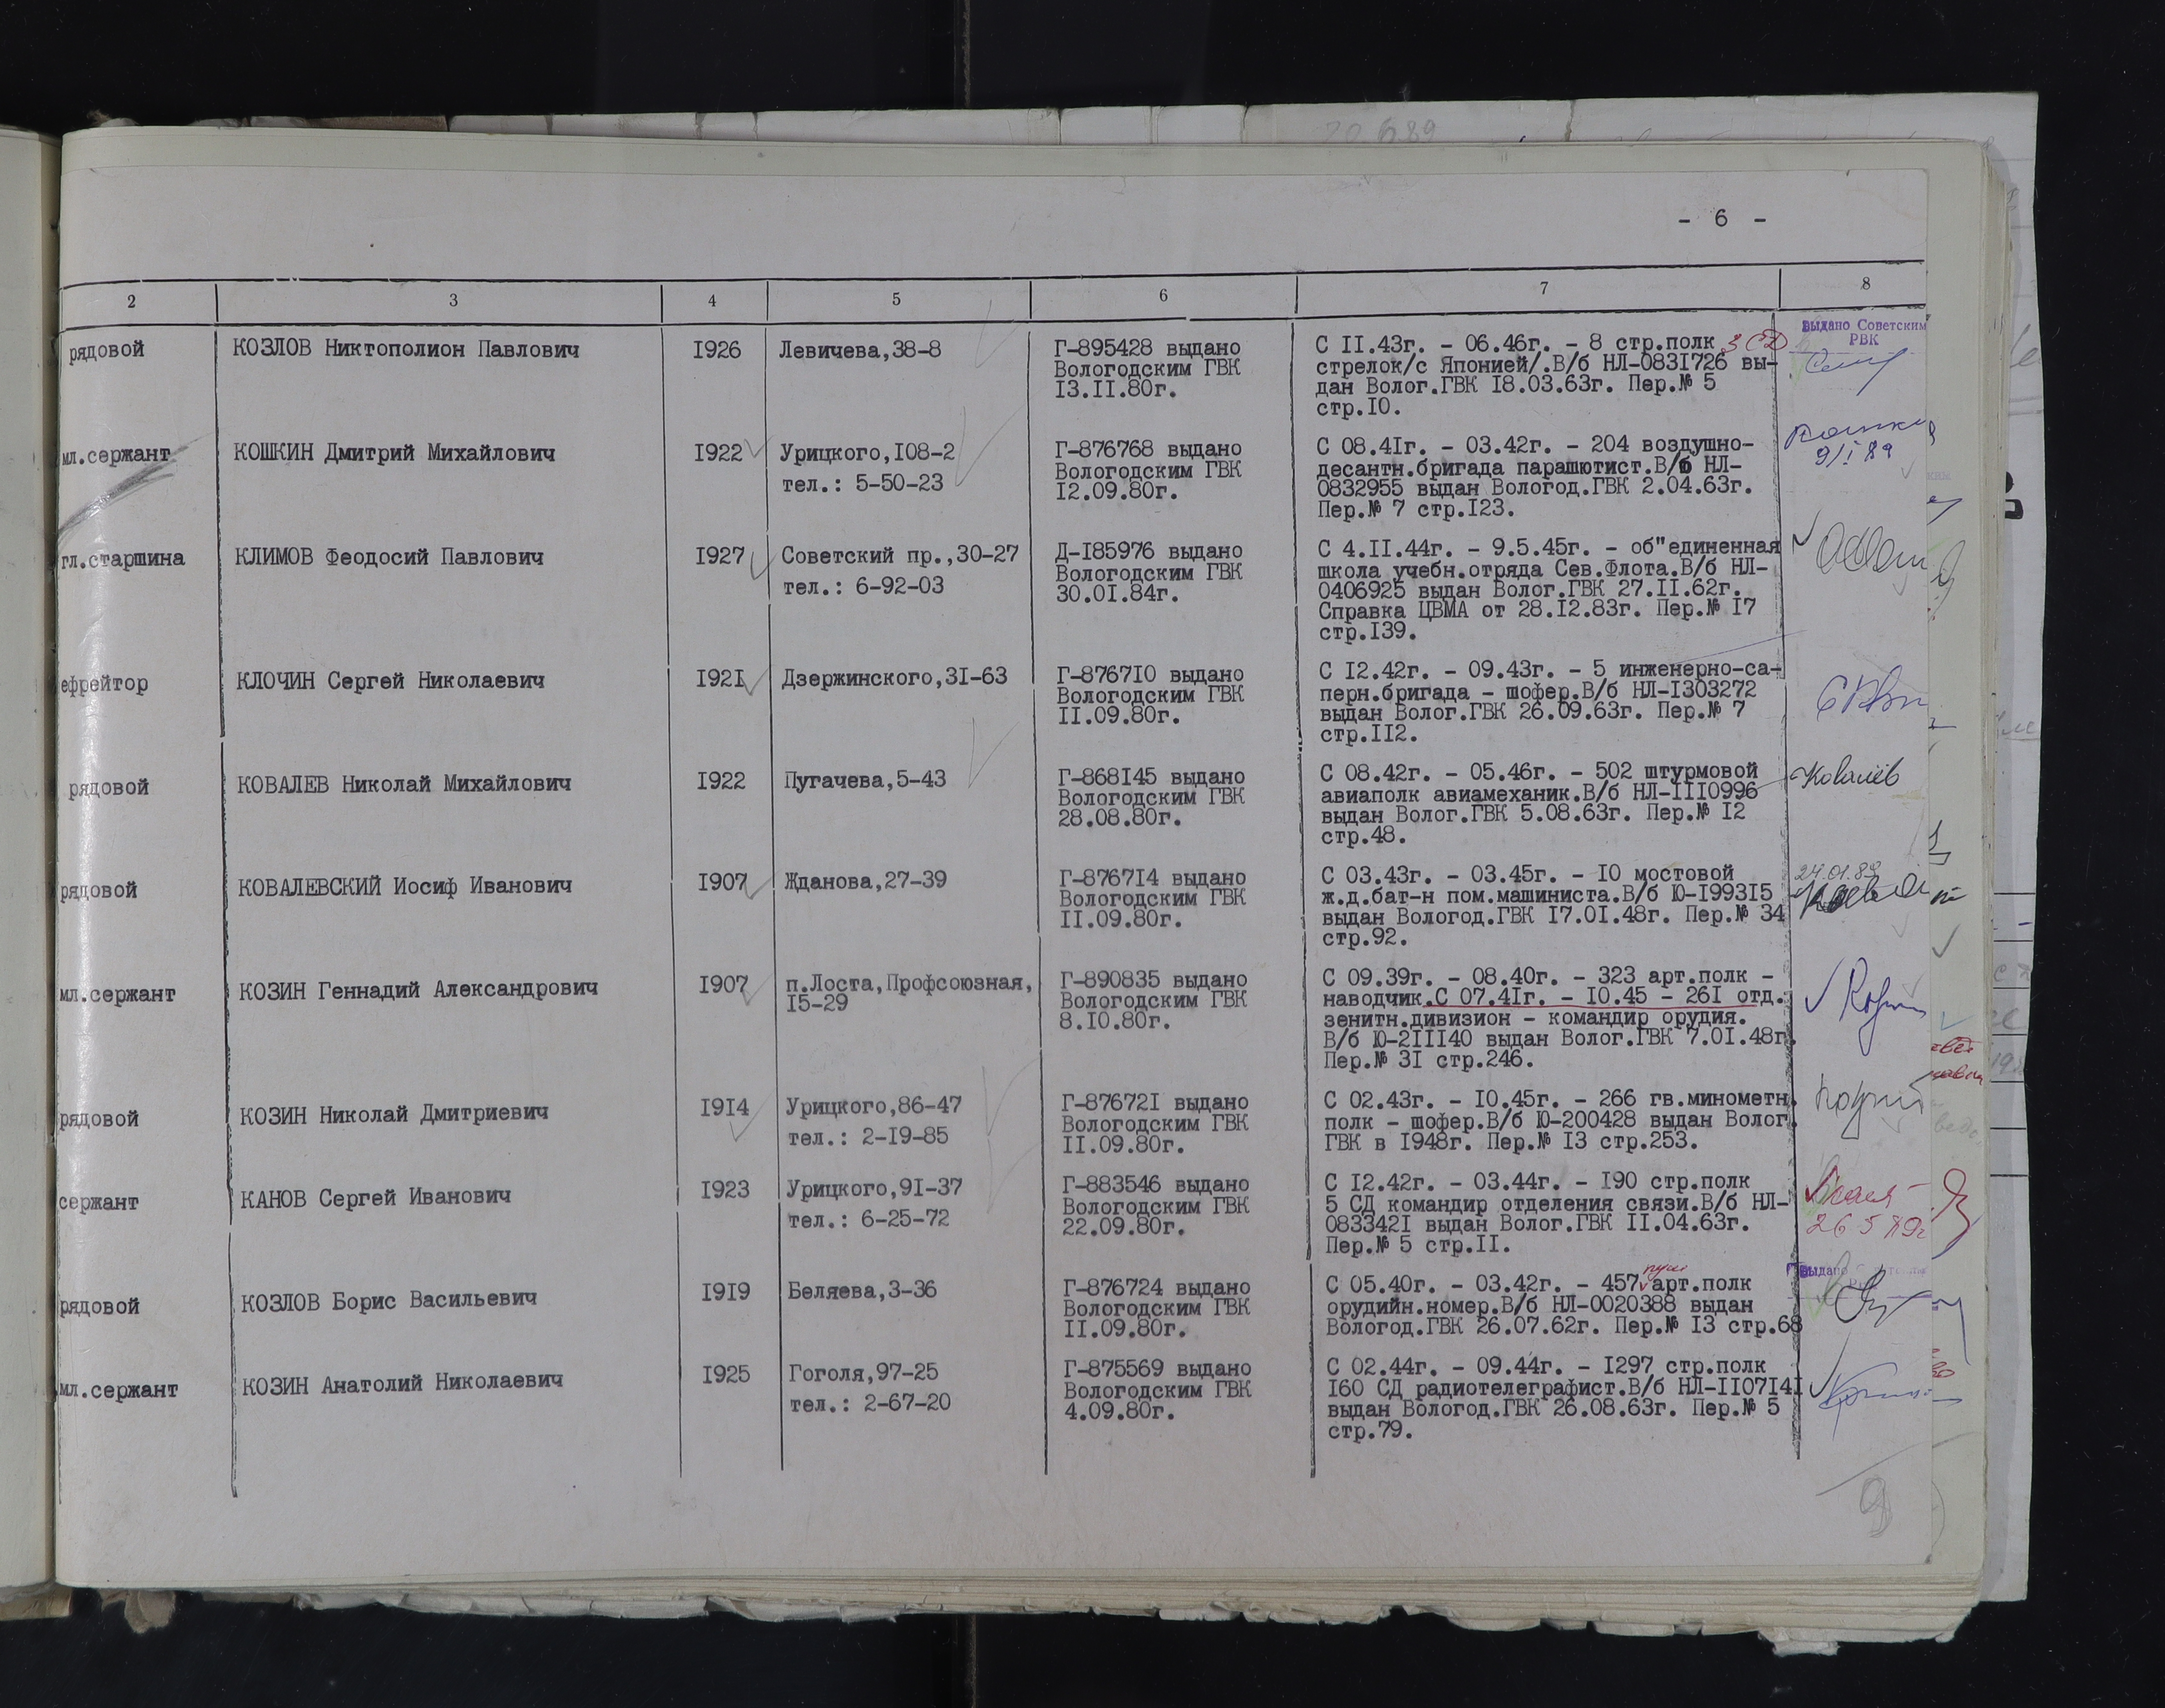 - 6 -
2 3 4 5 6 7 8
рядовой КОЗЛОВ Никтополион Павлович 1926 Левичева,38-8 Г-895428 выдано С 11.43г. - 06.46г. - 8 стр.полк 3 СД Выдано Советским
Вологодским ГВК стрелок/с Японией/.В/б НЛ-0831726 вы- РВК
13.11.80г. дан Волог.ГВК 18.03.63г. Пер.№ 5
стр.10.
мл.сержант КОШКИН Дмитрий Михайлович 1922 Урицкого,108-2 Г-876768 выдано С 08.41г. - 03.42г. - 204 воздушно-
тел.: 5-50-23 Вологодским ГВК десантн.бригада парашютист.В/б НЛ- 9/I 89
12.09.80г. 0832955 выдан Вологод.ГВК 2.04.63г.
Пер.№ 7 стр.123.
гл.старшина КЛИМОВ Феодосий Павлович 1927 Советский пр.,30-27 Д-185976 выдано С 4.11.44г. - 9.5.45г. - об"единенная
тел.: 6-92-03 Вологодским ГВК школа учебн.отряда Сев.Флота.В/б НЛ-
30.01.84г. 0406925 выдан Волог.ГВК 27.11.62г.
Справка ЦВМА от 28.12.83г. Пер.№ 17
стр.139.
ефрейтор КЛОЧИН Сергей Николаевич 1921 Дзержинского,31-63 Г-876710 выдано С 12.42г. - 09.43г. - 5 инженерно-са-
Вологодским ГВК перн.бригада - шофер.В/б НЛ-1303272
11.09.80г. выдан Волог.ГВК 26.09.63г. Пер.№ 7
стр.112.
рядовой КОВАЛЕВ Николай Михайлович 1922 Пугачева,5-43 Г-868145 выдано С 08.42г. - 05.46г. - 502 штурмовой Ковалёв
Вологодским ГВК авиаполк авиамеханик.В/б НЛ-1110996
28.08.80г. выдан Волог.ГВК 5.08.63г. Пер.№ 12
стр.48.
рядовой КОВАЛЕВСКИЙ Иосиф Иванович 1907 Жданова,27-39 Г-876714 выдано С 03.43г. - 03.45г. - 10 мостовой 24.01.89
Вологодским ГВК ж.д.бат-н пом.машиниста.В/б Ю-199315
11.09.80г. выдан Вологод.ГВК 17.01.48г. Пер.№ 34
стр.92.
мл.сержант КОЗИН Геннадий Александрович 1907 п.Лоста,Профсоюзная, Г-890835 выдано С 09.39г. - 08.40г. - 323 арт.полк -
15-29 Вологодским ГВК наводчик.С 07.41г. - 10.45 - 261 отд.
8.10.80г. зенитн.дивизион - командир орудия.
В/б Ю-211140 выдан Волог.ГВК 7.01.48г.
Пер.№ 31 стр.246.
рядовой КОЗИН Николай Дмитриевич 1914 Урицкого,86-47 Г-876721 выдано С 02.43г. - 10.45г. - 266 гв.минометн.
тел.: 2-19-85 Вологодским ГВК полк - шофер.В/б Ю-200428 выдан Волог.
11.09.80г. ГВК в 1948г. Пер.№ 13 стр.253.
сержант КАНОВ Сергей Иванович 1923 Урицкого,91-37 Г-883546 выдано С 12.42г. - 03.44г. - 190 стр.полк
тел.: 6-25-72 Вологодским ГВК 5 СД командир отделения связи.В/б НЛ-
22.09.80г. 0833421 выдан Волог.ГВК 11.04.63г. 26 5 89г
Пер.№ 5 стр.11.
рядовой КОЗЛОВ Борис Васильевич 1919 Беляева,3-36 Г-876724 выдано С 05.40г. - 03.42г. - 457 арт.полк Выдано
Вологодским ГВК орудийн.номер.В/б НЛ-0020388 выдан
11.09.80г. Вологод.ГВК 26.07.62г. Пер.№ 13 стр.68
мл.сержант КОЗИН Анатолий Николаевич 1925 Гоголя,97-25 Г-875569 выдано С 02.44г. - 09.44г. - 1297 стр.полк
тел.: 2-67-20 Вологодским ГВК 160 СД радиотелеграфист.В/б НЛ-1107141
4.09.80г. выдан Вологод.ГВК 26.08.63г. Пер.№ 5
стр.79.
9